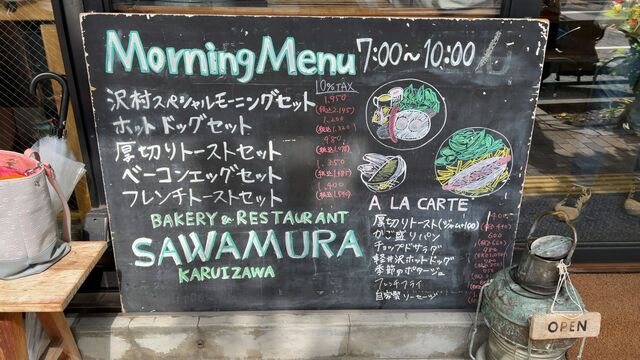 Morning Menu 7:00~10:00
10% TAX
沢村スペシャルモーニングセット 1,950
(税込2,145)
ホットドッグセット 1,200
(税込1,320)
厚切りトーストセット 980
(税込1,078)
ベーコンエッグセット 1,350
(税込1,485)
フレンチトーストセット 1,400
(税込1,540)
BAKERY & RESTAURANT
SAWAMURA
KARUIZAWA
A LA CARTE
厚切りトースト(ジャム+100) 400
(税込440)
盛りパン 600
チョップドサラダ
軽井沢ホットドッグ
季節のポタージュ
フレンチフライ
自家製ソーセージ
OPEN